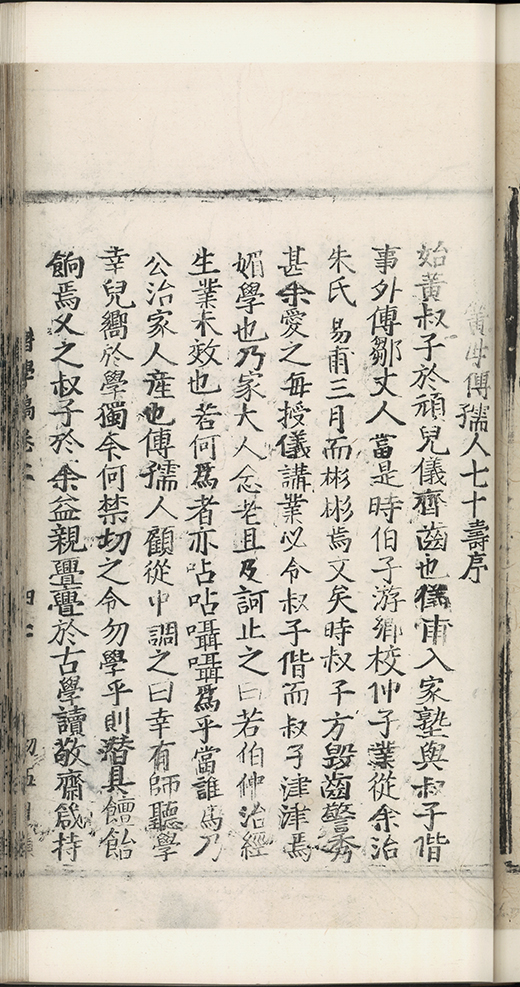 黃母傅孺人七十壽序
始黃叔子於頑兒儀齊齒也儀甫入家塾與叔子偕
事外傅鄒丈人當是時伯子游鄉校仲子業從余治
朱氏易甫三月而彬彬焉文矣時叔子方毀齒警秀
甚余愛之每授儀講業必令叔子偕而叔子津津焉
媚學也乃家大人念老且及訶止之曰若伯仲治經
生業未效也若何爲者亦呫呫囁囁爲乎當誰爲乃
公治家人產也傅孺人顧從中調之曰幸有師聽學
幸兒嚮於學獨奈何禁切之令勿學乎則潛具饘飴
餉焉久之叔子於余益親亹亹於古學讀敬齋箴持
學稿卷二